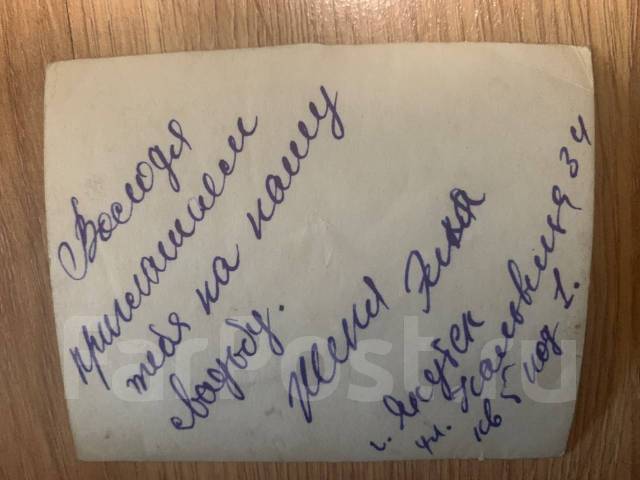 Володя
приглашаем
тебя на нашу
свадьбу.
Женя Элла
г. Якутск
ул. 34
кв 5 под 1.
FarPost.ru